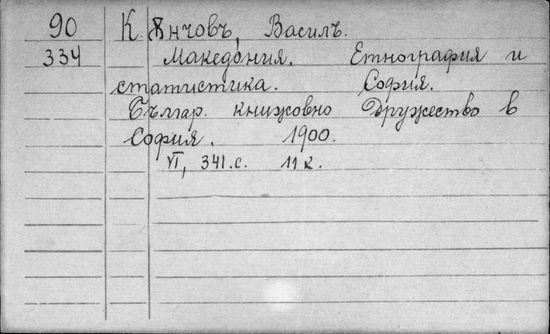 90 К. Ѫнчовъ, Василъ.
334 Македония. Етнография и
статистика. София.
Българ. книжовно Дружество в
София. 1900.
VI, 341.с. 11 к.